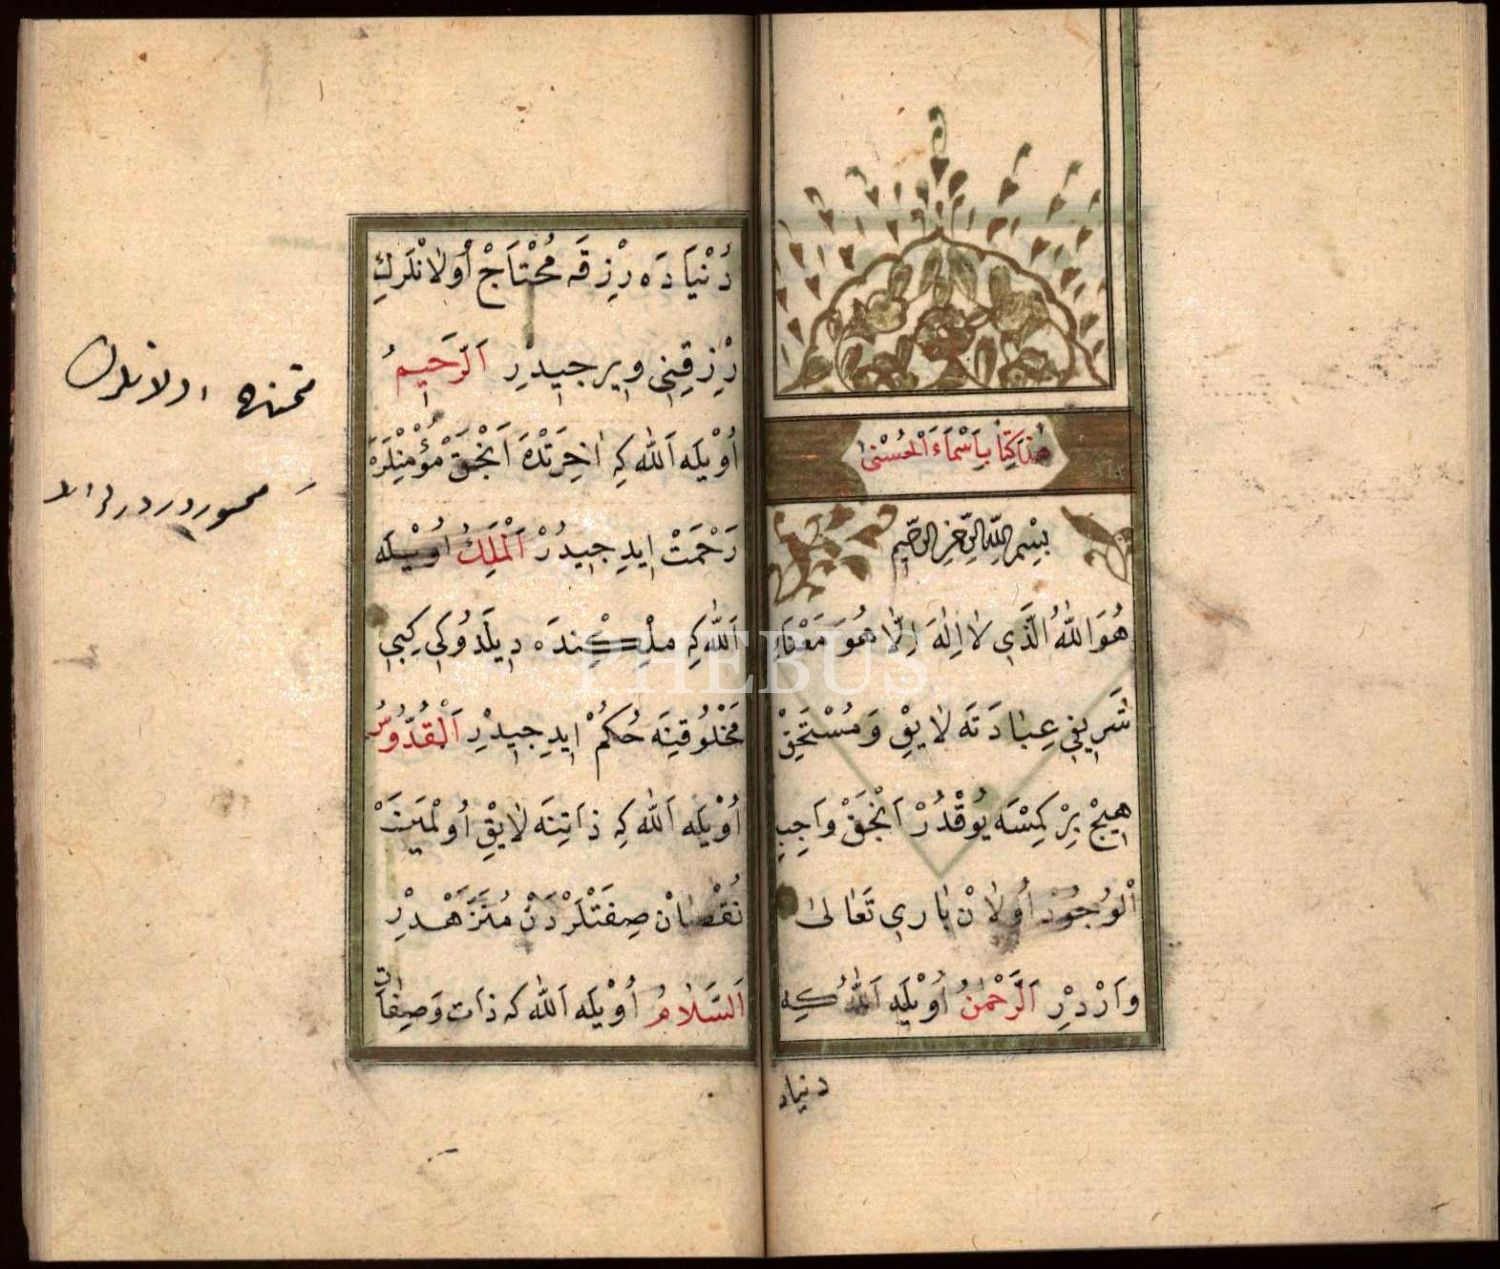 هٰذَا كِتَابِ اَسْمَاءَ الْحُسْنٰى
بِسْمِ اللّٰهِ الرَّحْمٰنِ الرَّحِيمِ
هُوَ اللّٰهُ الَّذِي لَا اِلٰهَ اِلَّا هُوَ مَعْنَاءِ
شَرِيفِي عِبَادَتَه لَايِقْ وَمُسْتَحِقْ
هِيچْ بِرْ كِمْسَه يُوقْدُرْ اَنْجَقْ وَاجِبِ
الْوُجُودْ اُولَانْ بَارِي تَعَالٰى
وَارْدِرْ اَلرَّحْمٰنُ اُوْيْلَه اَللّٰهُ كِه
دنياد
دُنْيَادَه رِزْقَه مُحْتَاجْ اُولَانْلَرِكِ
رِزْقِنِي وِيرِجِيدِرْ اَلرَّحِيمُ
اُوْيْلَه اَللّٰه كِه اٰخِرَتْدَه اَنْجَقْ مُؤْمِنْلَرَه
رَحْمَتْ اِيدِجِيدُرْ اَلْمَلِكُ اُوْيْلَه
اَللّٰه كِه مُلْكِنْدَه دِيلَدُوكِي كِبِي
مَخْلُوقِنَه حُكُمْ اِيدِجِيدِرْ اَلْقُدُّوسُ
اُوْيْلَه اَللّٰه كِه ذَاتِنَه لَايِقْ اُولْمَيَنْ
نُقْصَانْ صِفَتْلَرْدَنْ مُنَزَّهْدِرْ
اَلسَّلَامُ اُوْيْلَه اَللّٰه كه ذَات وَصِفَات
اولانلرك
PHEBUS